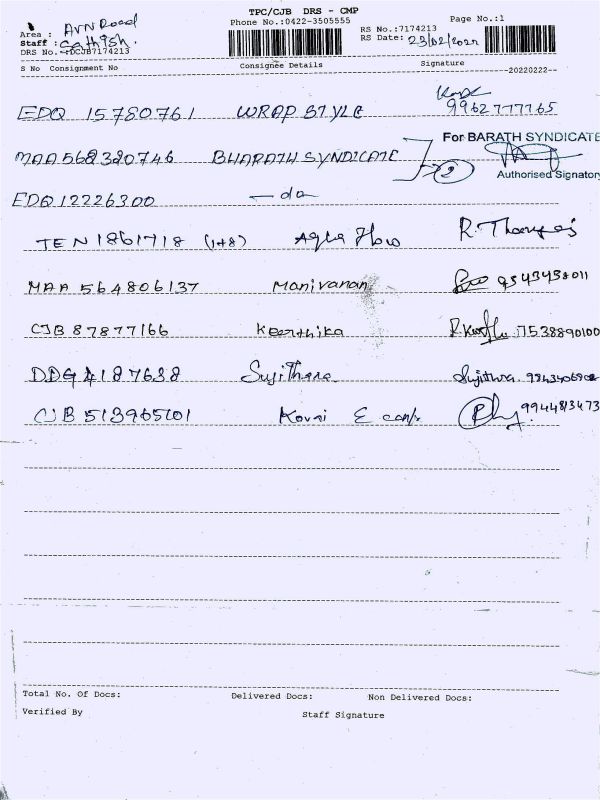 TPC/CJB DRS - CMP
Phone No.:0422-3505555 Page No.:1
Area : AVN Road RS No.:7174213
Staff : Sathish. RS Date: 23/02/2022
DRS No.-TDCJB7174213
S No Consignment No Consignee Details Signature
--20220222--
EDQ 15780761 WRAP STYLE 9962777765
For BARATH SYNDICATE
MAA 568320746 BHARATH SYNDICATE 2
Authorised Signatory
EDQ 12226300 - do
TEN 1861718 (1+8) Aqua Flow
MAA 564806137 Manivanan 9343438011
CJB 87877166 Keerthika 7538890100
DDG 4187638 Sujithra
CJB 513965101 Kovai E 9944813473
Total No. Of Docs: Delivered Docs: Non Delivered Docs:
Verified By Staff Signature